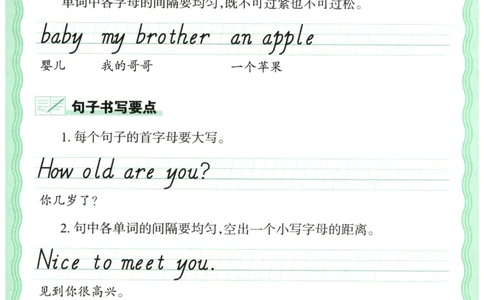 单词中各字母的间隔要均匀,既不可过紧也不可过松。
baby my brother an apple
婴儿 我的哥哥 一个苹果
句子书写要点
1. 每个句子的首字母要大写。
How old are you?
你几岁了?
2. 句中各单词的间隔要均匀,空出一个小写字母的距离。
Nice to meet you.
见到你很高兴。